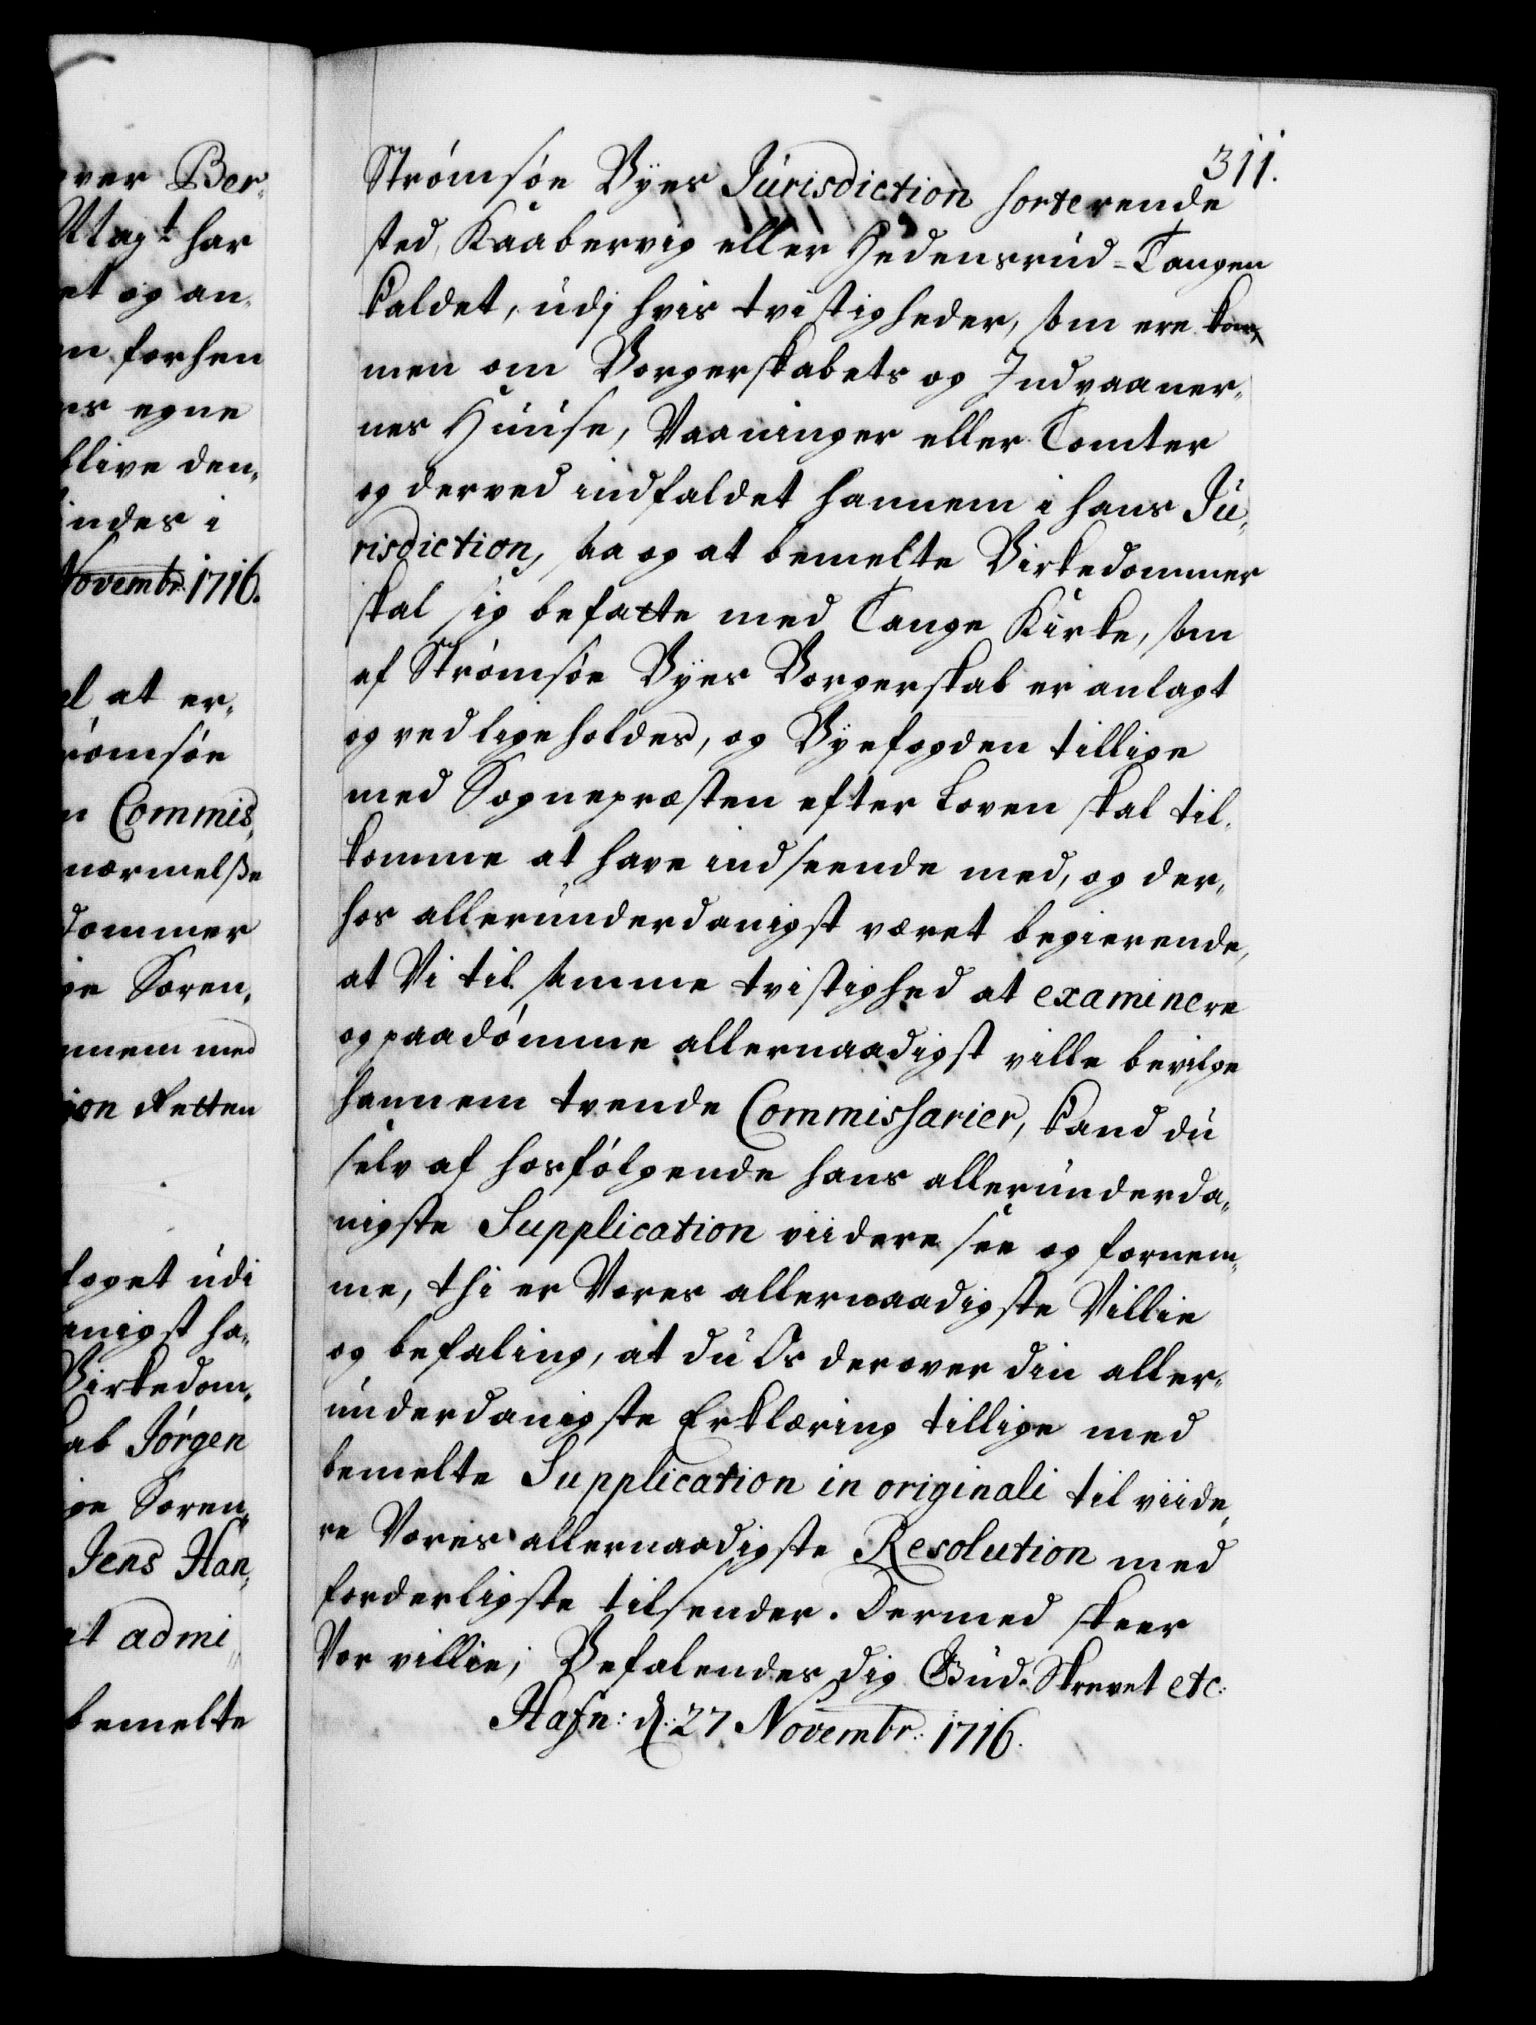 over Ber-
Magt har
et og an-
en forhen
egne
blive den-
indes i
Novembr: 1716.
at er-
rømsøe
n Commis-
nærmelße
dommer
ge Søren-
nnem med
ion Retten
foget udi
anigst ha-
Birkedom-
ab Jørgen
ge Søren-
Jens Han-
et admi-
bemelte
311.
Strømsøe Byes Jurisdiction sorterende
sted, Kaabervig eller Hedensrud-Tangen
kaldet, udj hvis tvistigheder, som ere kom-
men om Borgerskabets og Indvaaner-
nes Huuse, Vaaninger eller Tomter
og derved indfaldet hannem i hans Ju-
risdiction, saa og at bemelte Birkedommer
skal sig befatte med Tange Kirke, som
af Strømsøe Byes Borgerskab er anlagt
og vedligeholdes, og Byefogden tillige
med Sognepræsten efter Loven skal til-
komme at have indseende med, og der-
hos allerunderdanigst været begierende,
at Vi til samme tvistighed at examinere
og paadømme allernaadigst ville bevilge
hannem tvende Commissarier, kand du
selv af hosfølgende hans allerunderda-
nigste Supplication viidere see og fornem-
me, thi er Vores allernaadigste Villie
og befaling, at du Os derover din aller-
underdanigste Erklæring tillige med
bemelte Supplication in originali til viide-
re Vores allernaadigste Resolution med
forderligste tilsender. Dermed skeer
Vor villie; Befalendes dig Gud. Skrevet etc:
Hafn: d: 27 Novembr: 1716.